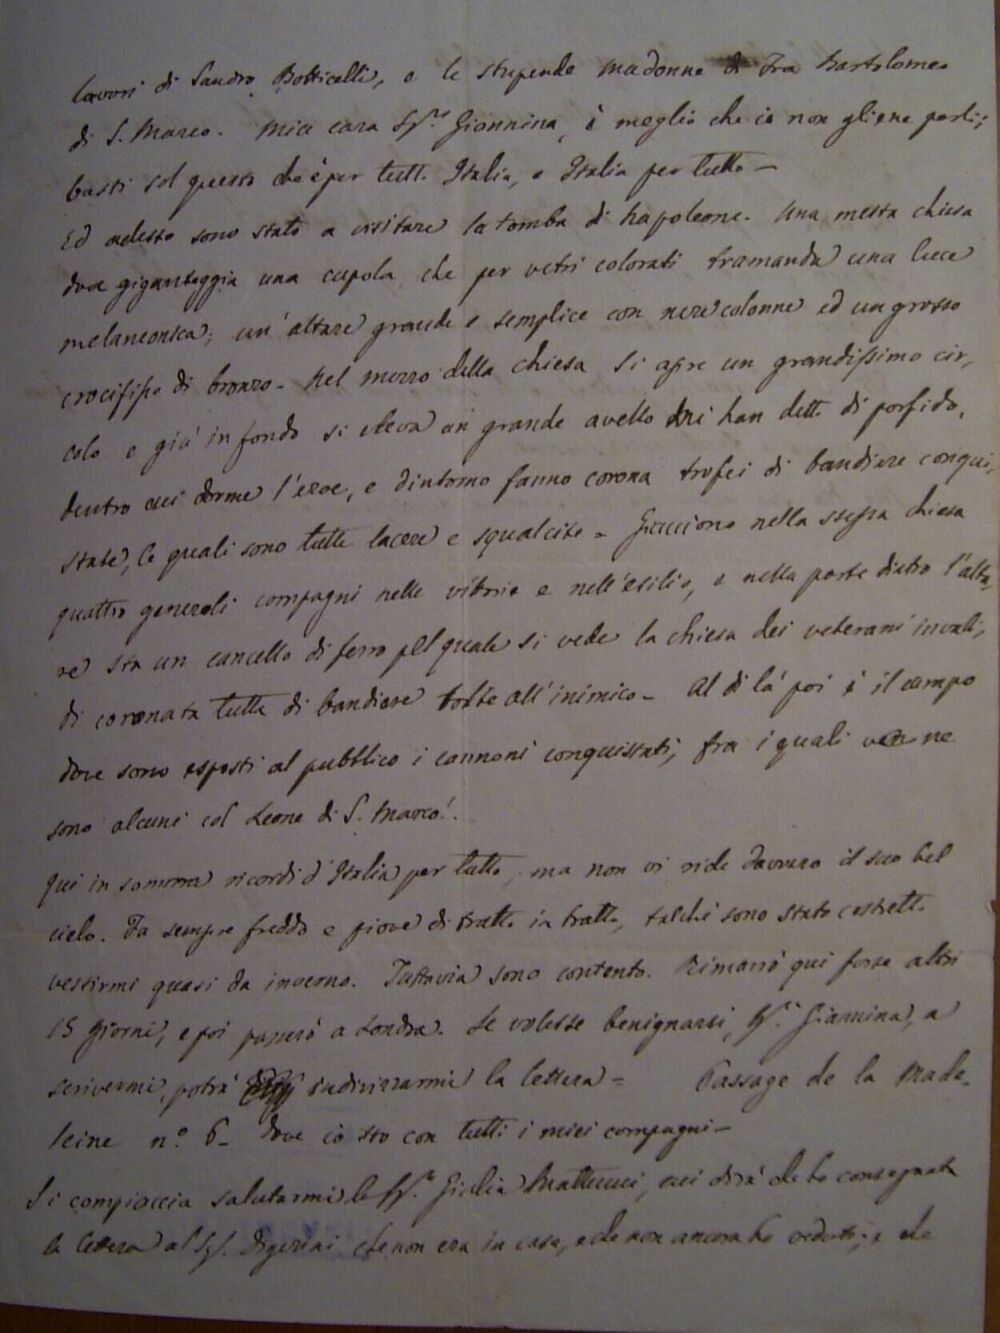 lavori di Sandro Botticelli, e le stupende Madonne di Fra Bartolomeo
di S. Marco. Mia cara Sig.ra Giannina, è meglio che io non gliene parli;
basti sol questo che è per tutto Italia, e Italia per tutto —
Ed adesso sono stato a visitare la tomba di Napoleone. Una mesta chiesa
dove giganteggia una cupola che per vetri colorati tramanda una luce
melanconica; un'altare grande e semplice con nere colonne ed un grosso
crocifisso di bronzo - Nel mezzo della chiesa si apre un grandissimo cir,
colo e giù in fondo si eleva un grande avello han detto di porfido,
dentro cui dorme l'eroe, e dintorno fanno corona trofei di bandiere conqui,
state, le quali sono tutte lacere e squalcite - Giacciono nella stessa chiesa
quattro generali compagni nelle vittorie e nell'esilio, e nella parte dietro l'alta,
re sta un cancello di ferro pel quale si vede la chiesa dei veterani invali,
di coronata tutta di bandiere tolte all'inimico - Al di là poi è il campo
dove sono esposti al pubblico i cannoni conquistati, fra i quali ve ne
sono alcuni col Leone di S. Marco!.
Qui in somma ricordi d'Italia per tutto, ma non vi ride davvero il suo bel
cielo. Fa sempre freddo e piove di tratto in tratto, talchè sono stato costretto
vestirmi quasi da inverno. Tuttavia sono contento. Rimarrò qui forse altri
15 giorni, e poi passerò a Londra. Se volesse benignarsi, Sig.ra Giannina, a
scrivermi, potrà indirizzarmi la lettera = Passage de la Made,
leine n.o 6 - dove io sto con tutti i miei compagni —
Si compiaccia salutarmi la Sig.ra Giulia Matteucci, cui dirà che ho consegnata
la lettera al Sig. Digerini che non era in casa, e che non ancora ho veduto; e che